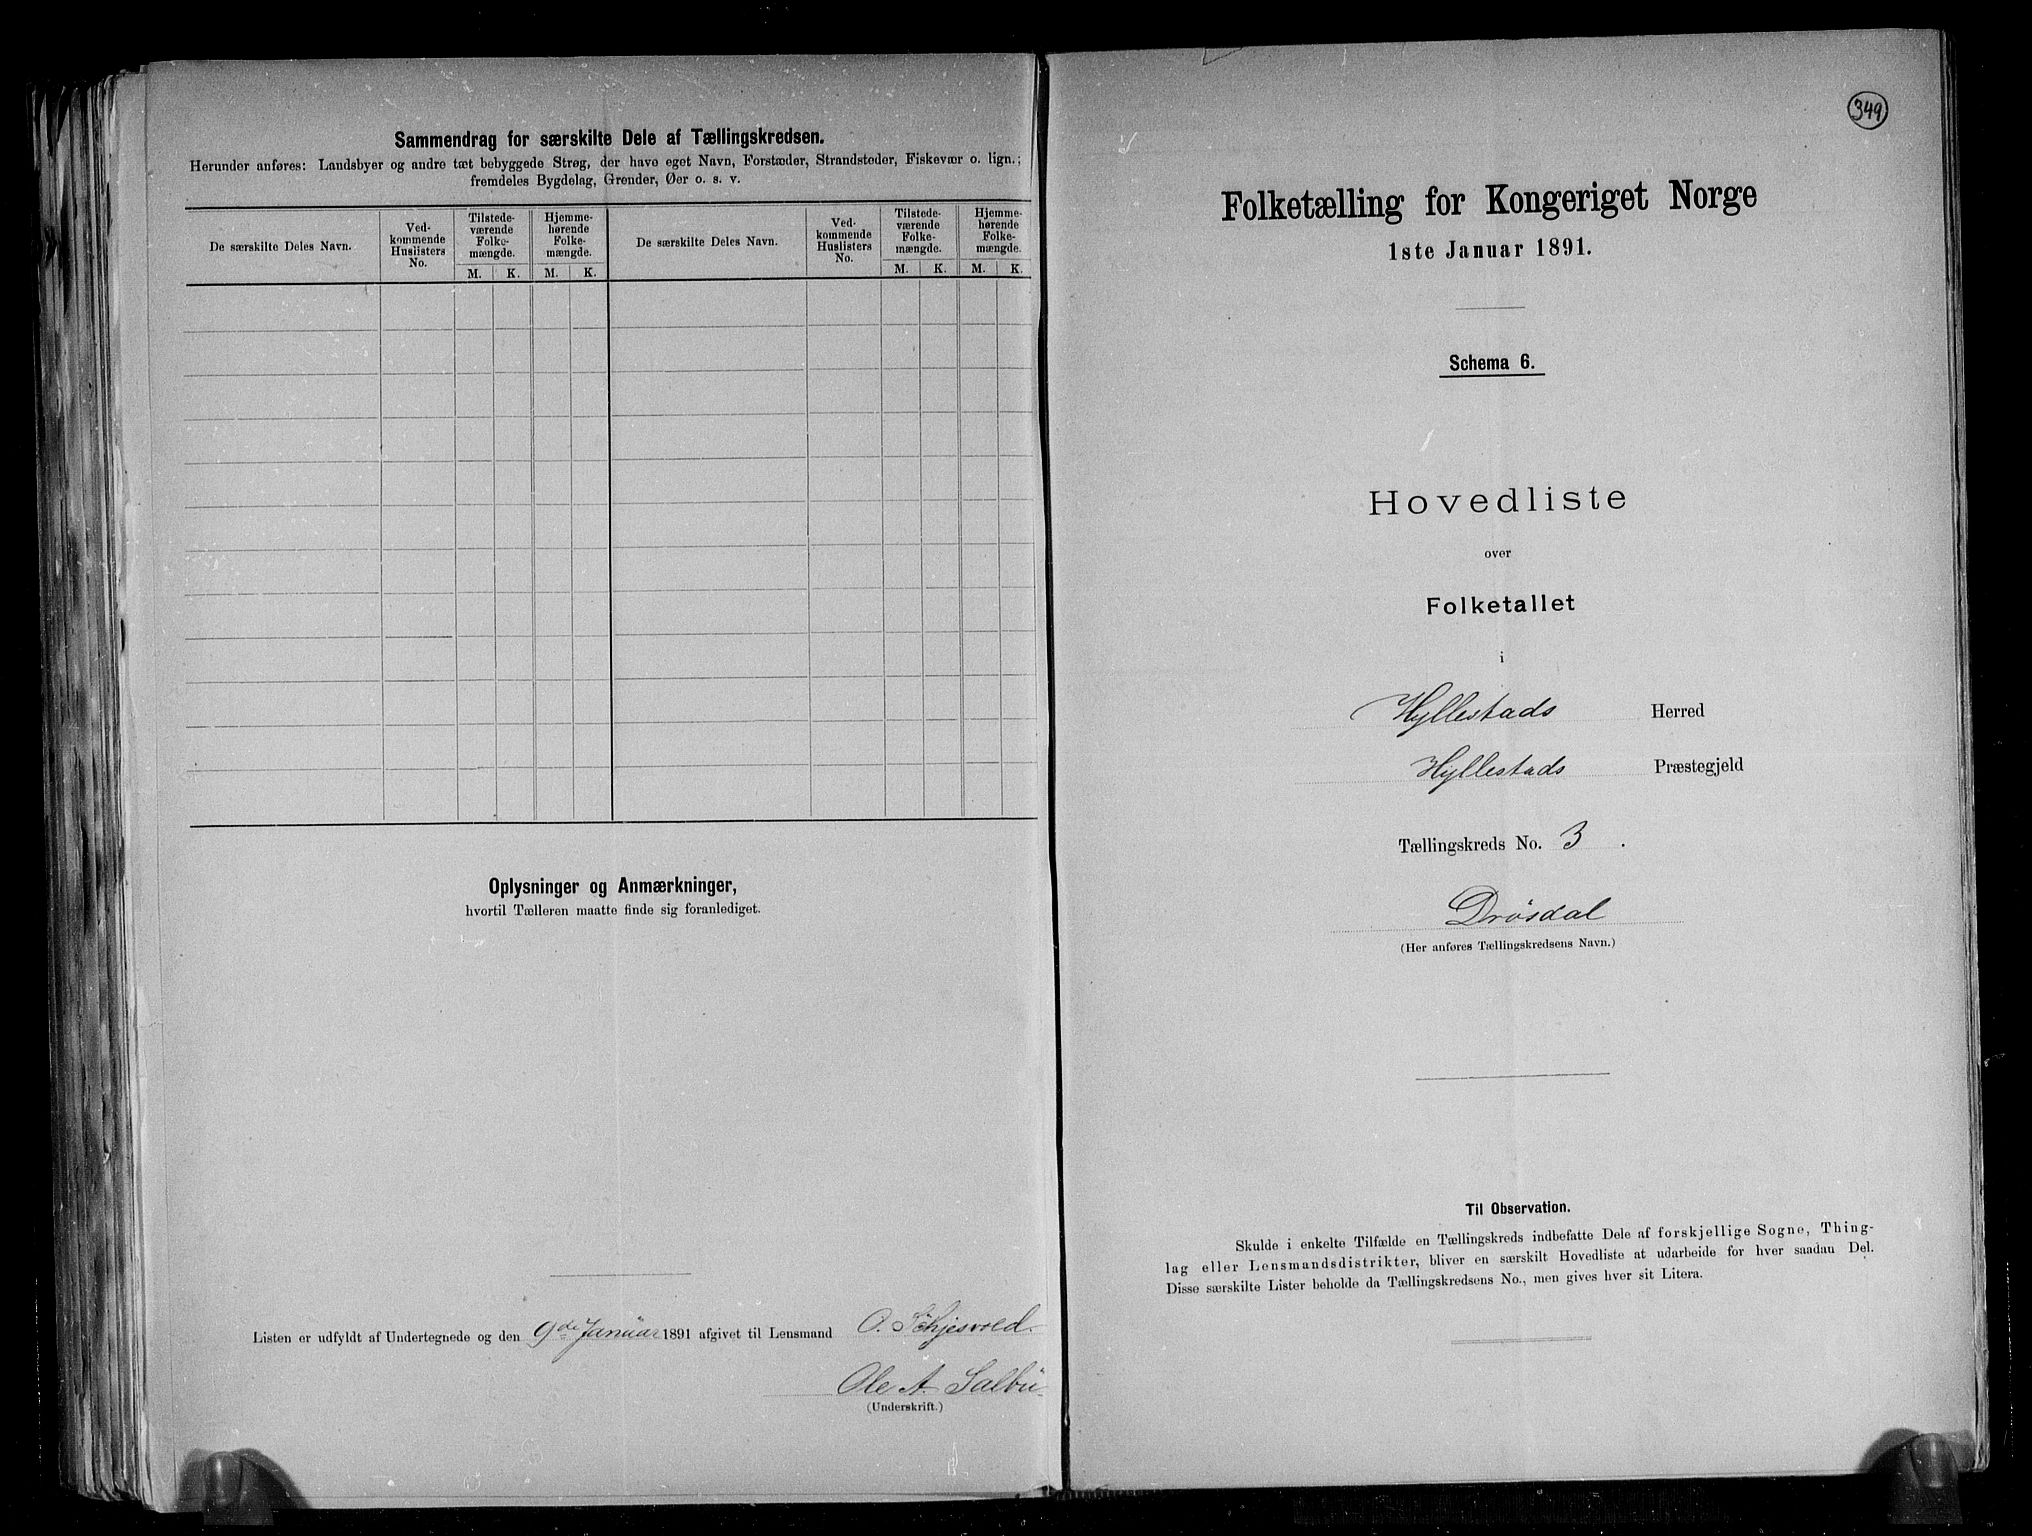 Sammendrag for særskilte Dele af Tællingskredsen.
Herunder anføres: Landsbyer og andre tæt bebyggede Strøg, der have eget Navn, Forstæder, Strandsteder, Fiskevær o. lign.;
fremdeles Bygdelag, Grender, Øer o. s. v.
De særskilte Deles Navn.
Ved-
kommende
Huslisters
No.
Tilstede-
værende
Folke-
mængde.
M. K.
Hjemme-
hørende
Folke-
mængde.
M. K.
De særskilte Deles Navn.
Ved-
kommende
Huslisters
No.
Tilstede-
værende
Folke-
mængde.
M. K.
Hjemme-
hørende
Folke-
mængde.
M. K.
Oplysninger og Anmærkninger,
hvortil Tælleren maatte finde sig foranlediget.
Listen er udfyldt af Undertegnede og den 9de Januar 1891 afgivet til Lensmand O.
Ole A. Salbu
(Underskrift.)
349
Folketælling for Kongeriget Norge
1ste Januar 1891.
Schema 6.
Hovedliste
over
Folketallet
i
Hyllestads Herred
Hyllestads Præstegjeld
Tællingskreds No. 3.
Drösdal
(Her anføres Tællingskredsens Navn.)
Til Observation.
Skulde i enkelte Tilfælde en Tællingskreds indbefatte Dele af forskjellige Sogne, Thing-
lag eller Lensmandsdistrikter, bliver en særskilt Hovedliste at udarbeide for hver saadan Del.
Disse særskilte Lister beholde da Tællingskredsens No., men gives hver sit Litera.